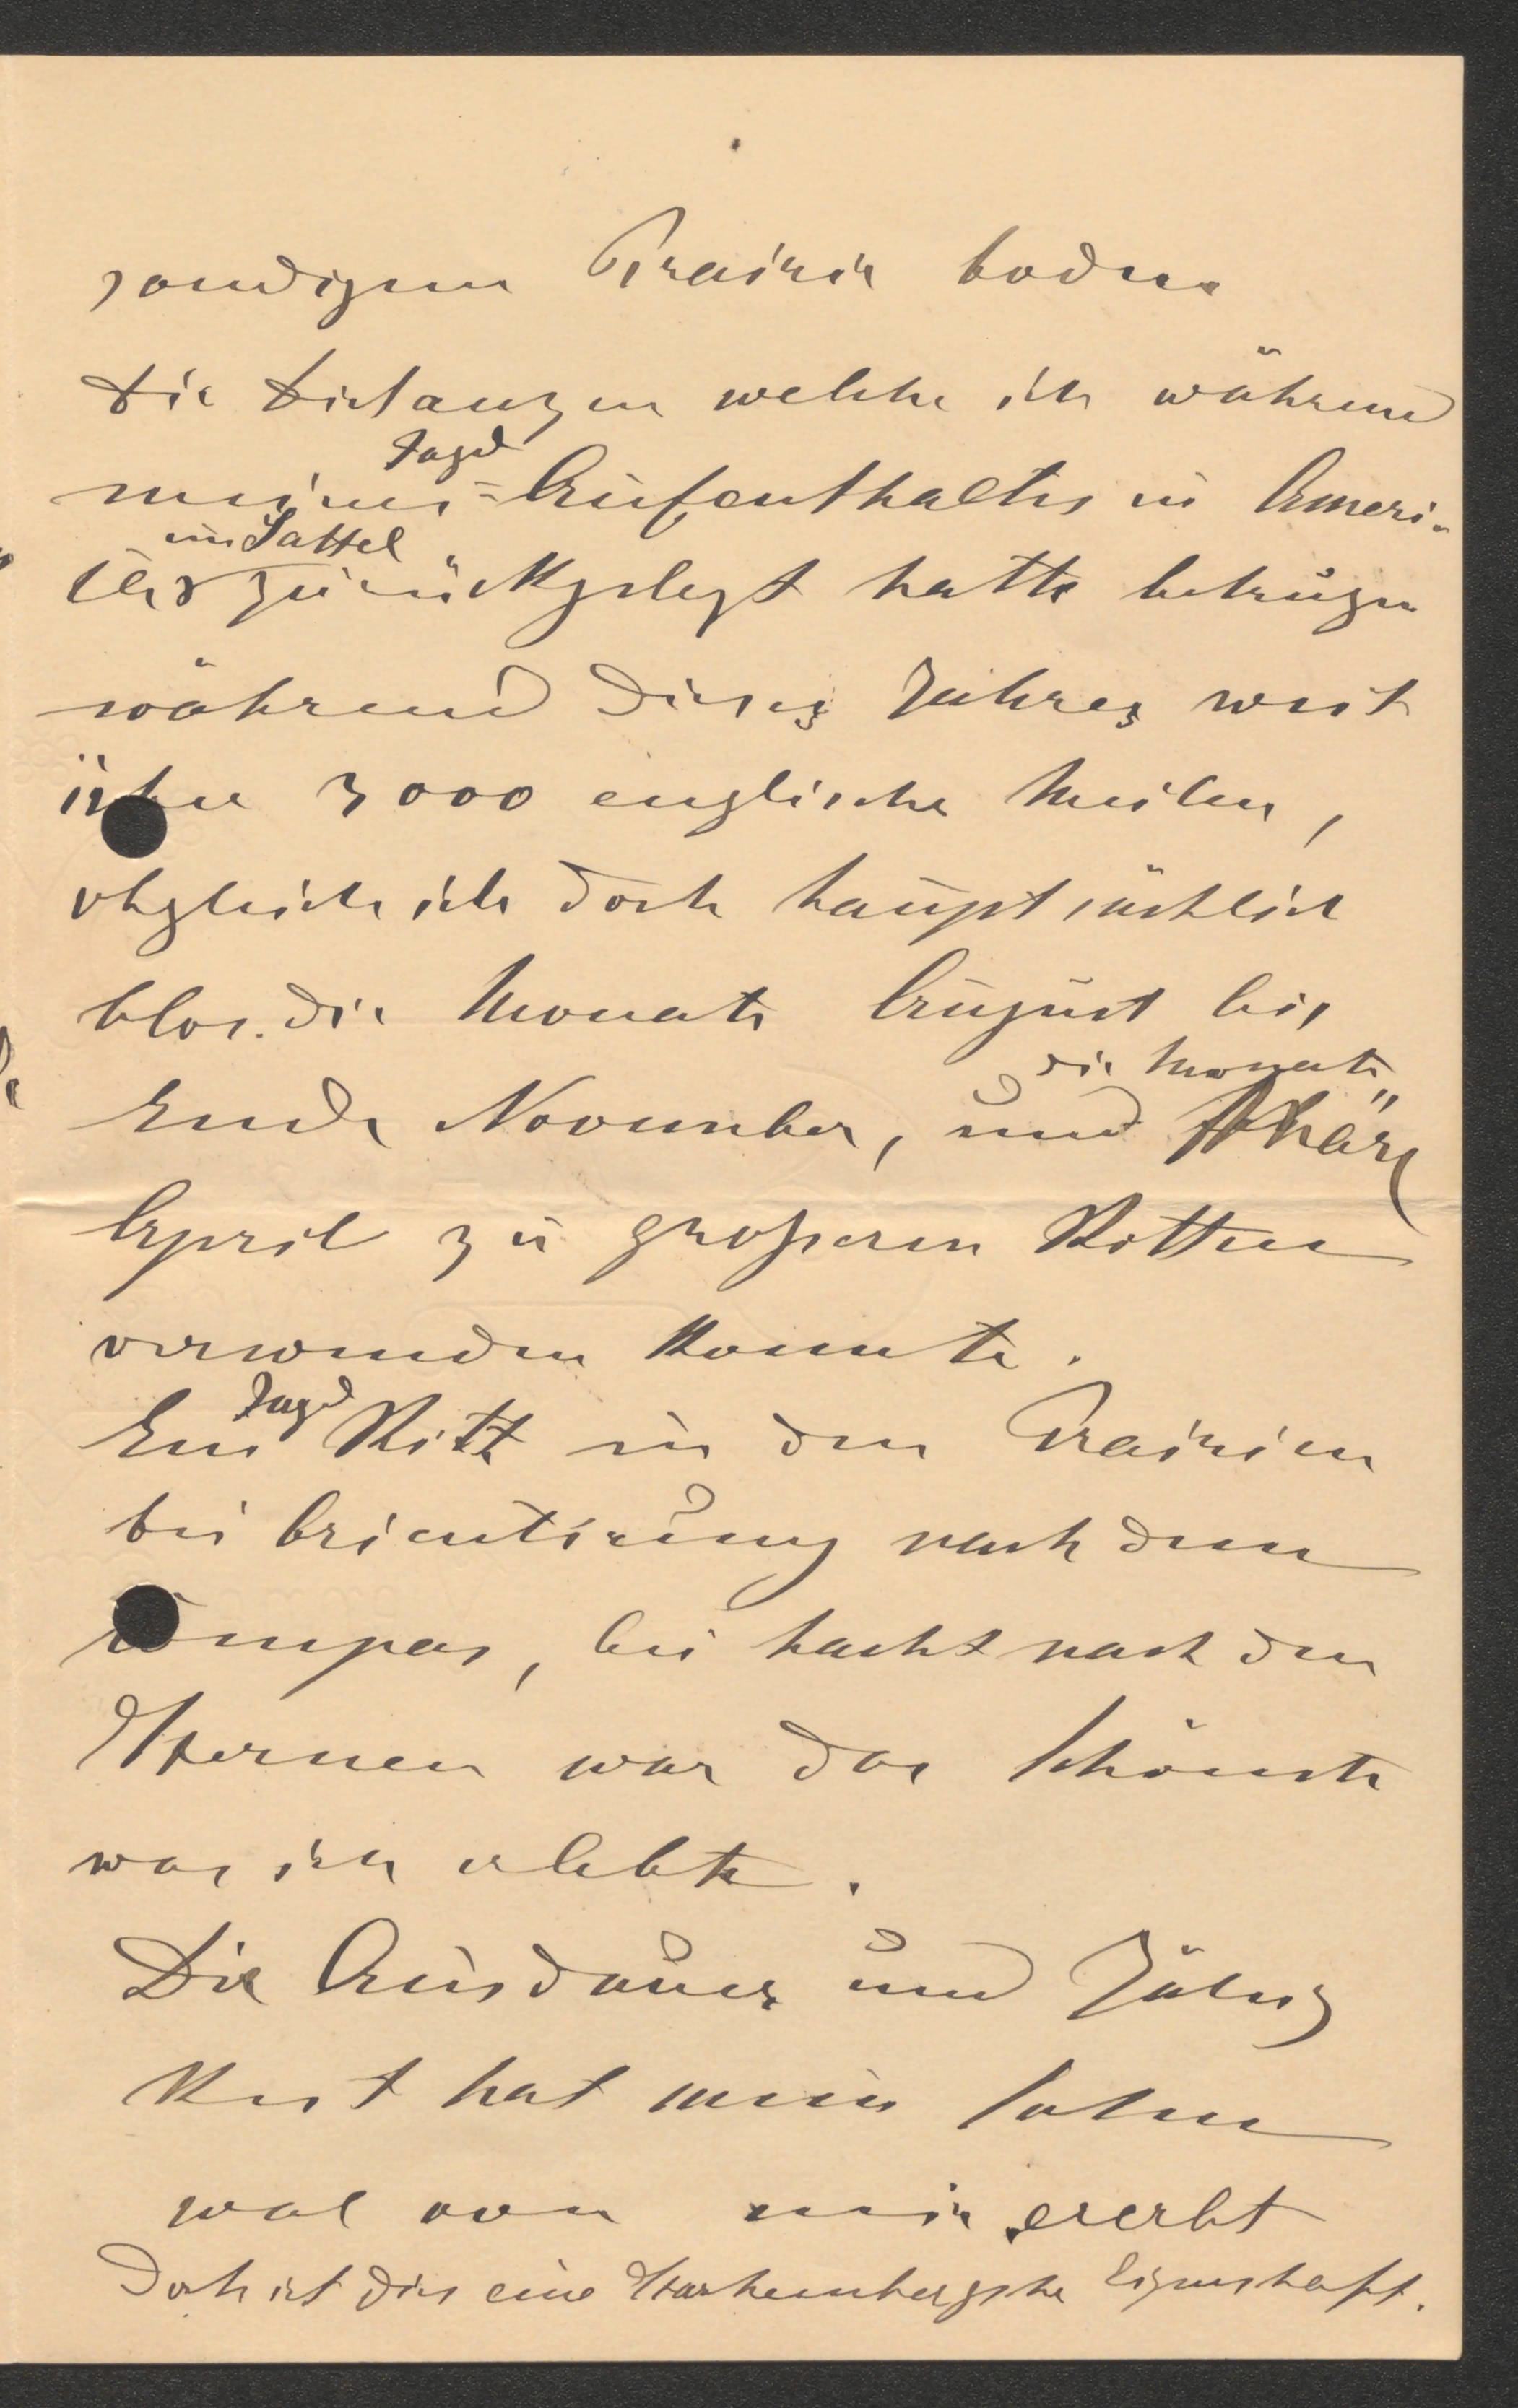 sandigem Prairie boden
Die Distanzen welche ich während
Jagd
meines = Aufenthaltes in Ameri-
im Sattel
ka zurückgelegt hatte betrugen
während dieses Jahres weit
über 3000 englische Meilen,
obgleich ich doch hauptsächlich
blos die Monate August bis
die Monate
Ende November, und März
April zu großeren Ritten
verwenden konnte.
Jagd
Ein Ritt in den Prairien
bei Orientirung nach dem
Compas, bei Nacht nach den
Sternen war das schönste
was ich erlebte.
Die Ausdauer und Zähig
keit hat mein Sohn
wol von mir ererbt
Doch ist dies eine Starhembergsche Eigenschaft.